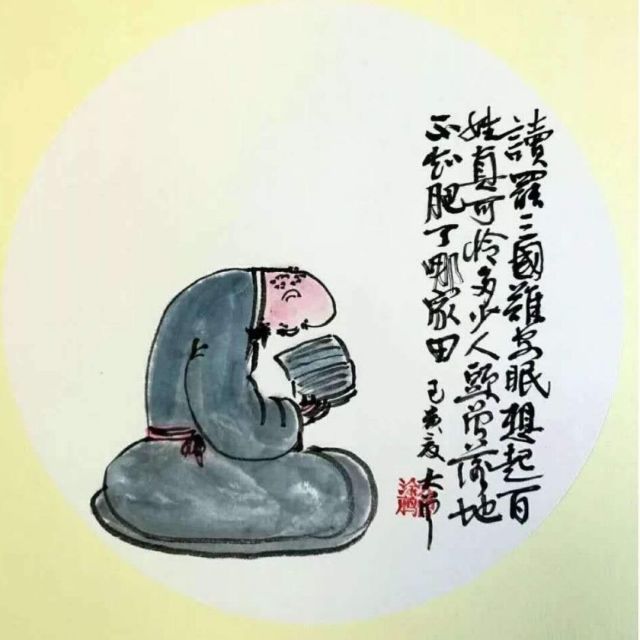 讀罷三國難安眠想起百
姓真可怜多少人頭曾落地
不知肥了哪家田 己亥夏 大